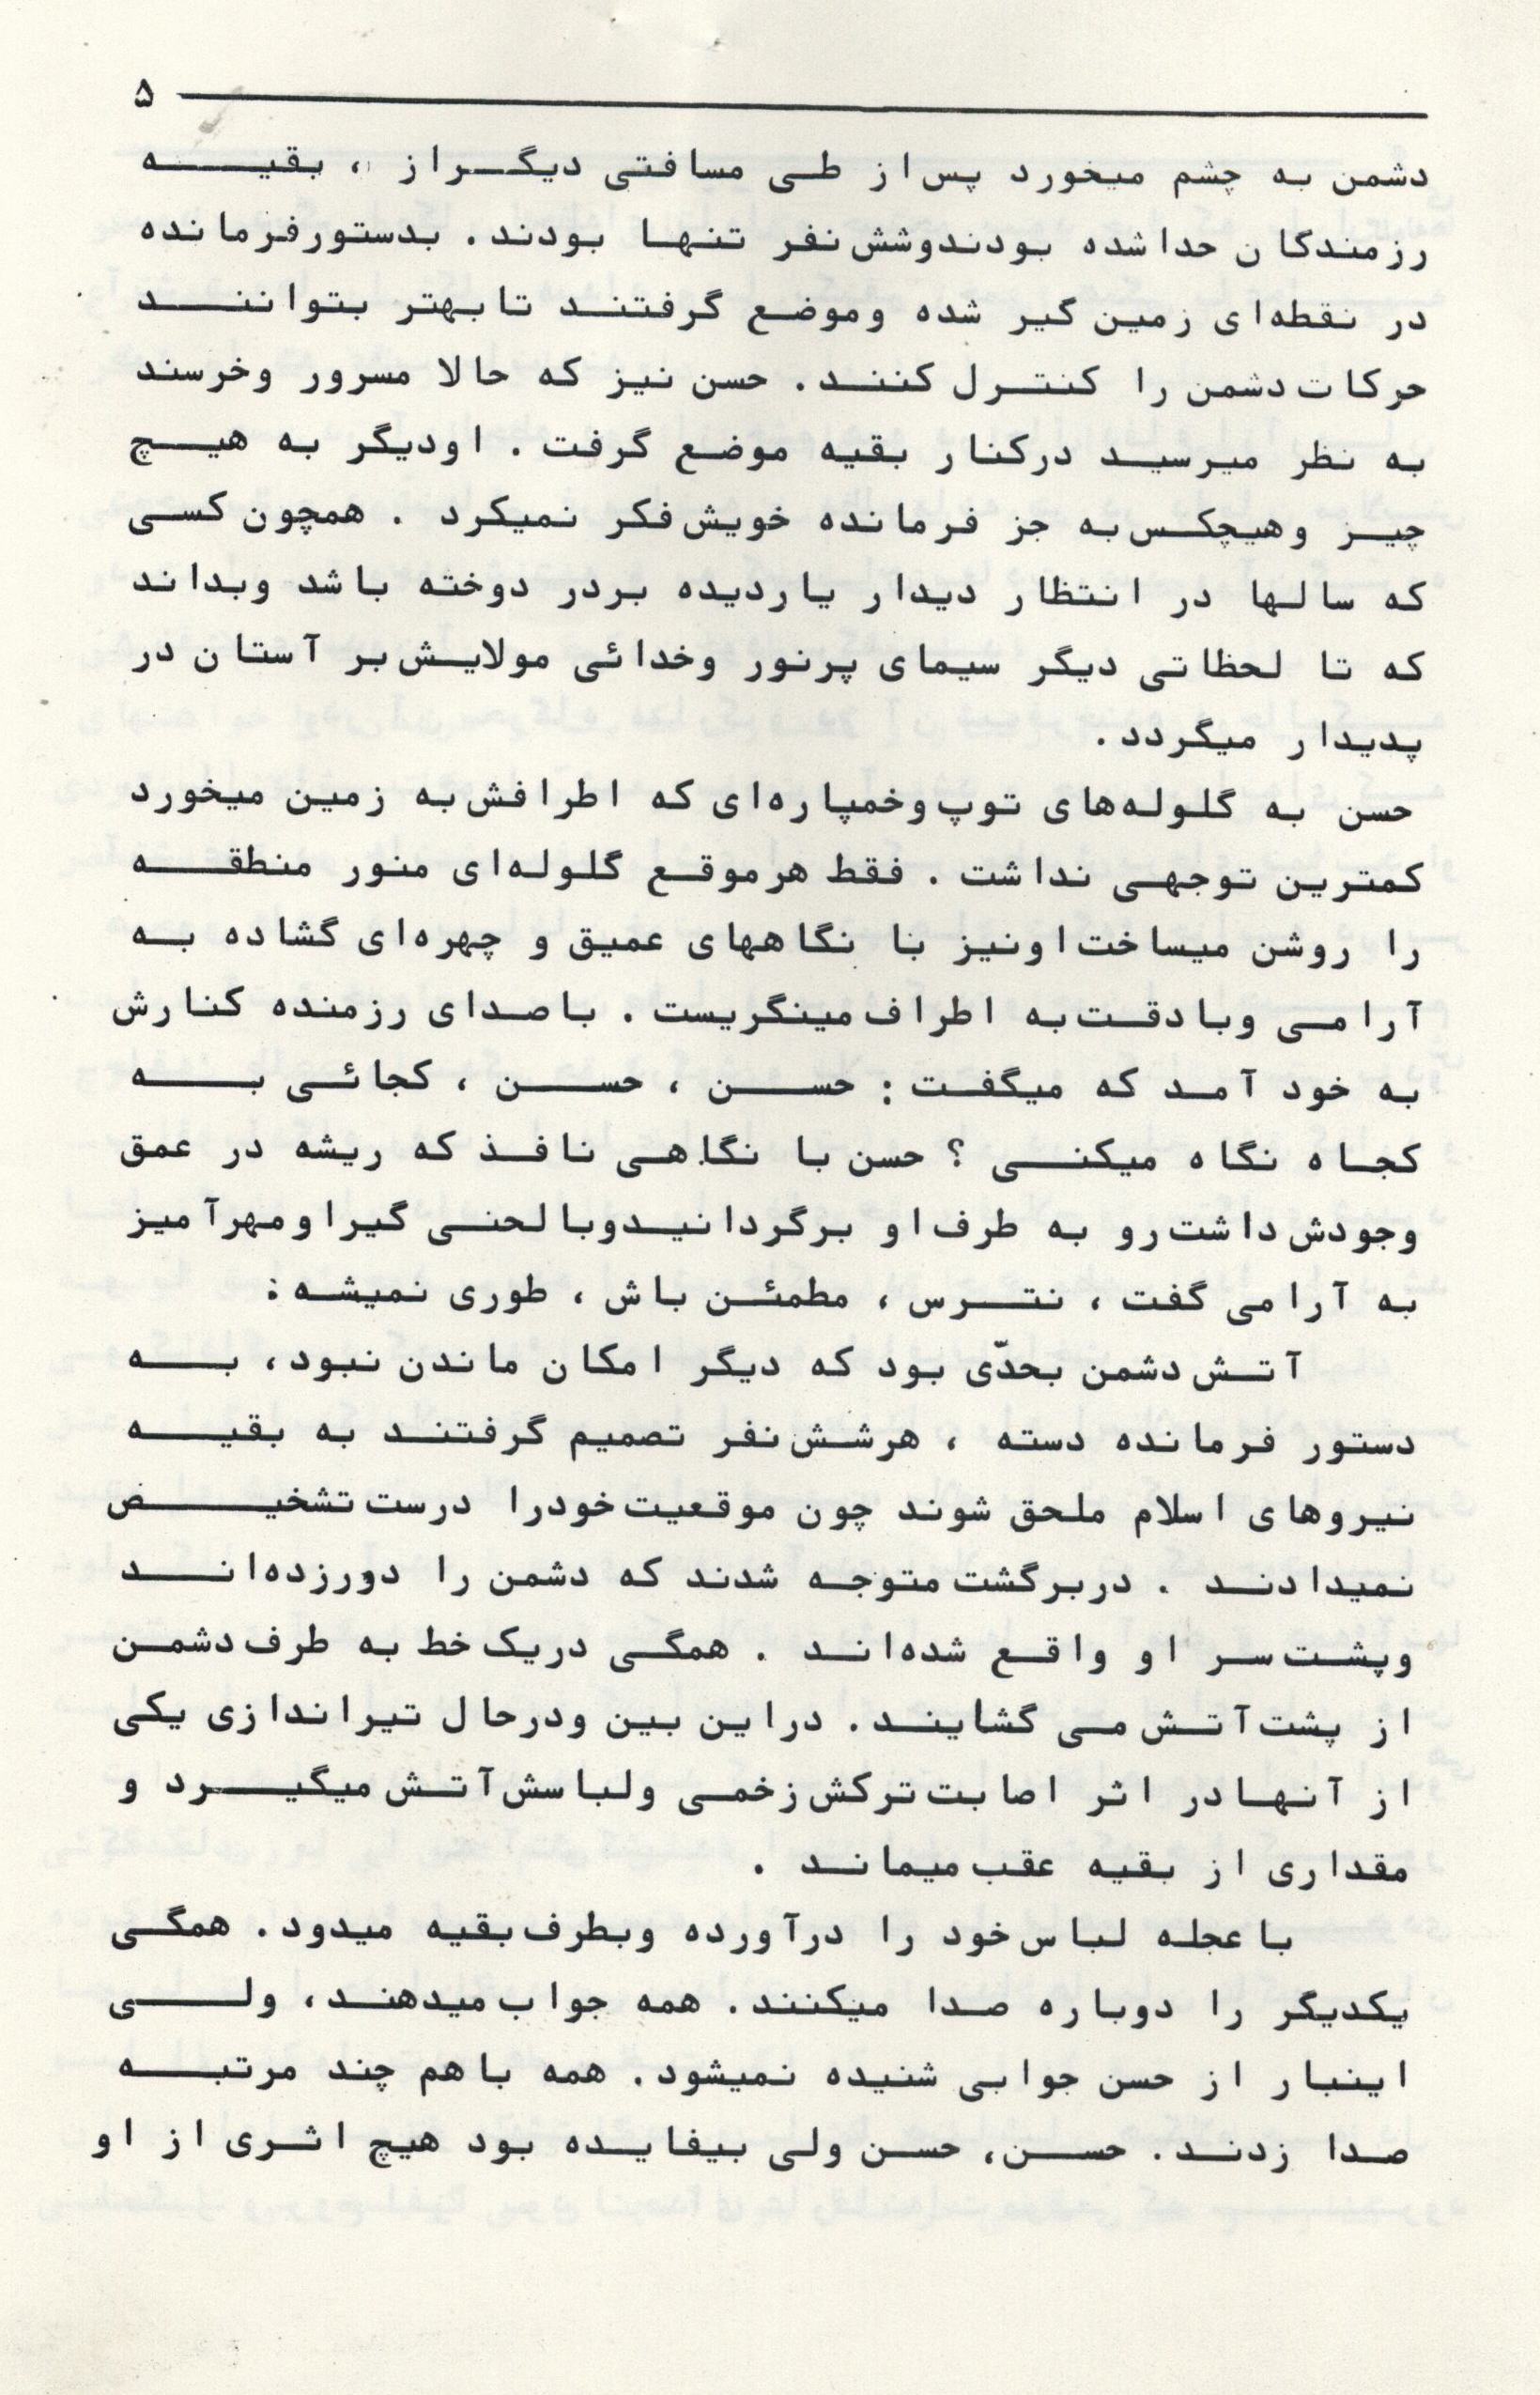 ۵
دشمن به چشم میخورد پس از طی مسافتی دیگر از ، بقیه
رزمندگان جدا شده بودند وشش نفر تنها بودند. بدستور فرمانده
در نقطه‌ای زمین گیر شده وموضع گرفتند تا بهتر بتوانند
حرکات دشمن را کنترل کنند. حسن نیز که حالا مسرور وخرسند
به نظر میرسید در کنار بقیه موضع گرفت . او دیگر به هیچ
چیز وهیچکس به جز فرمانده خویش فکر نمیکرد . همچون کسی
که سالها در انتظار دیدار یار دیده بر در دوخته باشد وبداند
که تا لحظاتی دیگر سیمای پرنور وخدائی مولایش بر آستان در
پدیدار میگردد.
حسن به گلوله‌های توپ وخمپاره‌ای که اطرافش به زمین میخورد
کمترین توجهی نداشت . فقط هر موقع گلوله‌ای منور منطقه
را روشن میساخت او نیز با نگاههای عمیق و چهره‌ای گشاده به
آرامی وبا دقت به اطراف مینگریست . با صدای رزمنده کنارش
به خود آمد که میگفت : حسن ، حسن ، کجائی به
کجاه نگاه میکنی ؟ حسن با نگاهی نافذ که ریشه در عمق
وجودش داشت رو به طرف او برگردانید وبا لحنی گیرا ومهرآمیز
به آرامی گفت ، نترس ، مطمئن باش ، طوری نمیشه :
آتش دشمن بحدّی بود که دیگر امکان ماندن نبود، به
دستور فرمانده دسته ، هر شش نفر تصمیم گرفتند به بقیه
نیروهای اسلام ملحق شوند چون موقعیت خود را درست تشخیص
نمیدادند . در برگشت متوجه شدند که دشمن را دور زده‌اند
وپشت سر او واقع شده‌اند . همگی در یک خط به طرف دشمن
از پشت آتش می گشایند. در این بین ودر حال تیراندازی یکی
از آنها در اثر اصابت ترکش زخمی ولباسش آتش میگیرد و
مقداری از بقیه عقب میماند .
با عجله لباس خود را درآورده وبطرف بقیه میدود. همگی
یکدیگر را دوباره صدا میکنند. همه جواب میدهند، ولی
اینبار از حسن جوابی شنیده نمیشود. همه با هم چند مرتبه
صدا زدند. حسن، حسن ولی بیفایده بود هیچ اثری از او